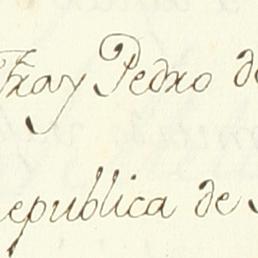 Fray Pedro de
republica de